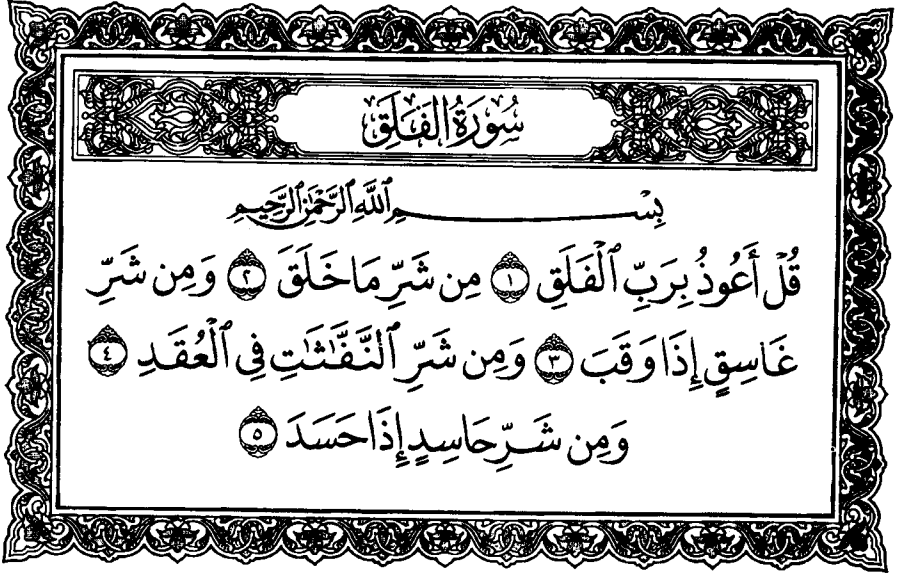 سُورَةُ الفَلَقِ
بِسْمِ ٱللَّهِ ٱلرَّحْمَٰنِ ٱلرَّحِيمِ
قُلْ أَعُوذُ بِرَبِّ ٱلْفَلَقِ ١ مِن شَرِّ مَا خَلَقَ ٢ وَمِن شَرِّ
غَاسِقٍ إِذَا وَقَبَ ٣ وَمِن شَرِّ ٱلنَّفَّٰثَٰتِ فِى ٱلْعُقَدِ ٤
وَمِن شَرِّ حَاسِدٍ إِذَا حَسَدَ ٥